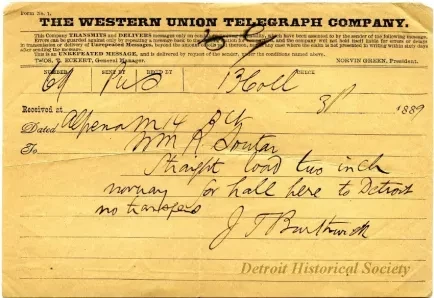 Form No. 1.
THE WESTERN UNION TELEGRAPH COMPANY.
This Company TRANSMITS and DELIVERS messages only on conditions limiting its liability, which have been assented to by the sender of the following message.
Errors can be guarded against only by repeating a message back to the sending station for comparison, and the company will not hold itself liable for errors or delays
in transmission or delivery of Unrepeated Messages, beyond the amount of tolls paid thereon, nor in any case where the claim is not presented in writing within sixty days
after sending the message.
This is an UNREPEATED MESSAGE, and is delivered by request of the sender, under the conditions named above.
THOS. T. ECKERT, General Manager. NORVIN GREEN, President.
NUMBER SENT BY REC'D BY CHECK
69 13 Coll
Received at 1889
Dated Alpena M 14
To Wm R Soutar
Straight load two inch
norway for hall here to Detroit
no transfers
J T Burthwick
Detroit Historical Society